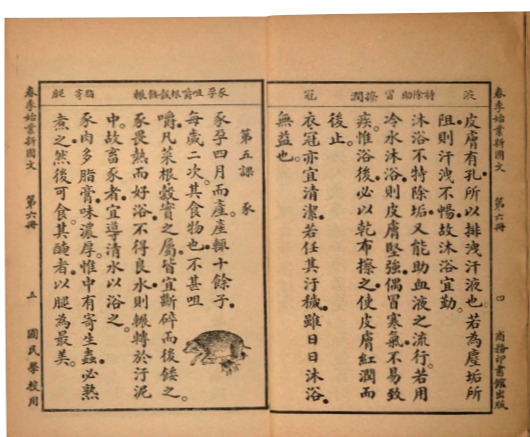 春季始業新國文 第六冊 四 商務印書館出版
液 特除助冒擦潤 冠
皮膚有孔所以排洩汗液也若為塵垢所
阻則汗洩不暢故沐浴宜勤
沐浴不特除垢又能助血液之流行若用
冷水沐浴則皮膚堅強偶冒寒氣不易致
疾惟浴後必以乾布擦之使皮膚紅潤而
後止
衣冠亦宜清潔若任其汙穢雖日日沐浴
無益也
豕孕咀嚼穀輾 脂寄
第五課 豕
豕孕四月而產產輒十餘子
每歲二次其食物也不甚咀
嚼凡菜根穀實之屬皆宜斷碎而後餧之
豕畏熱而好浴不得良水則輾轉於汙泥
中故畜豕者宜導清水以浴之
豕肉多脂膏味濃厚惟中有寄生蟲必熟
煮之然後可食其醃者以腿為最美
春季始業新國文 第六冊 五 國民學校用